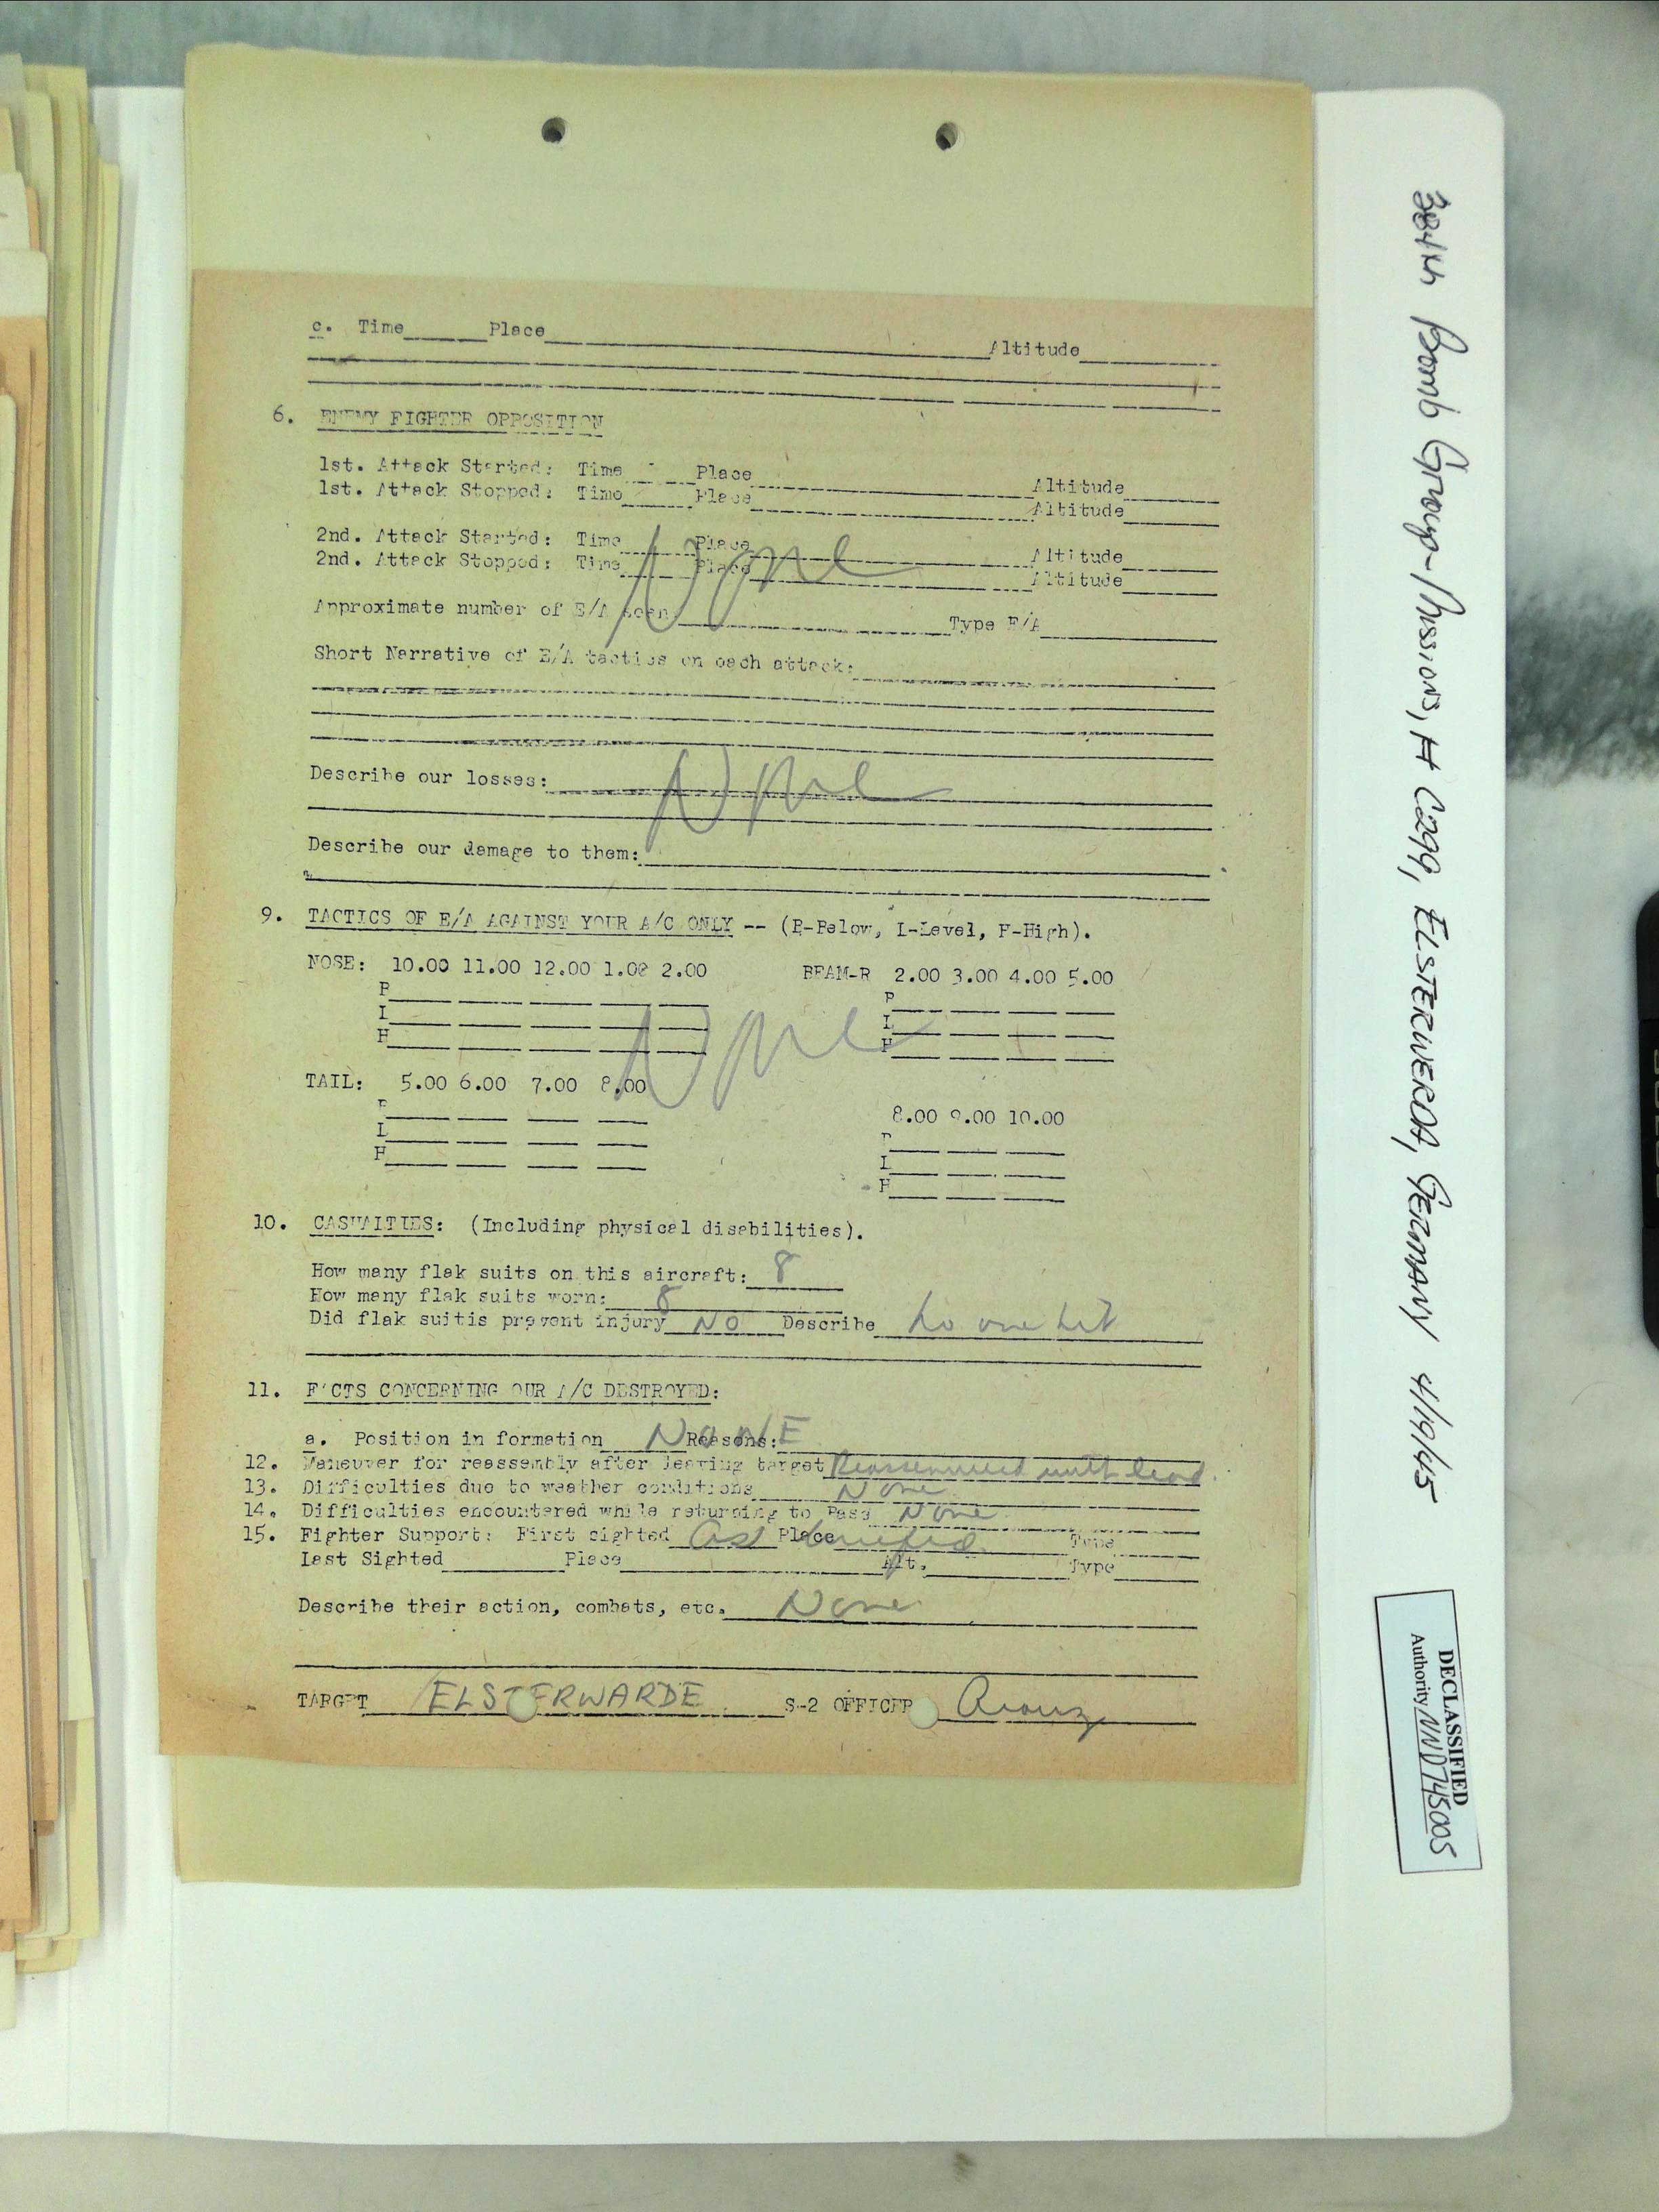 c. Time Place Altitude
6. ENEMY FIGHTER OPPOSITION
1st. Attack Started: Time Place Altitude
1st. Attack Stopped: Time Place Altitude
2nd. Attack Started: Time Place Altitude
2nd. Attack Stopped: Time Place Altitude
None
Approximate number of E/A seen Type E/A
Short Narrative of E/A tactics on each attack:
Describe our losses: None
Describe our damage to them:
9. TACTICS OF E/A AGAINST YOUR A/C ONLY -- (B-Below, L-Level, H-High).
NOSE: 10.00 11.00 12.00 1.00 2.00 BEAM-R 2.00 3.00 4.00 5.00
B B
L L
H H
None
TAIL: 5.00 6.00 7.00 8.00
8.00 9.00 10.00
B B
L L
H H
10. CASUALTIES: (Including physical disabilities).
How many flak suits on this aircraft: 8
How many flak suits worn: 8
Did flak suitis prevent injury NO Describe no one hit
11. FACTS CONCERNING OUR A/C DESTROYED:
a. Position in formation NONE Reasons:
12. Maneuver for reassembly after leaving target Reassembled with lead.
13. Difficulties due to weather conditions None
14. Difficulties encountered while returning to Base None
15. Fighter Support: First sighted As Place briefed Type
Last Sighted Place Alt. Type
Describe their action, combats, etc. None
TARGET ELSTERWARDE S-2 OFFICER
384th Bomb Group-Missions, # C299, ELSTERWERDA, GERMANY 4/19/45
DECLASSIFIED
Authority NND745005